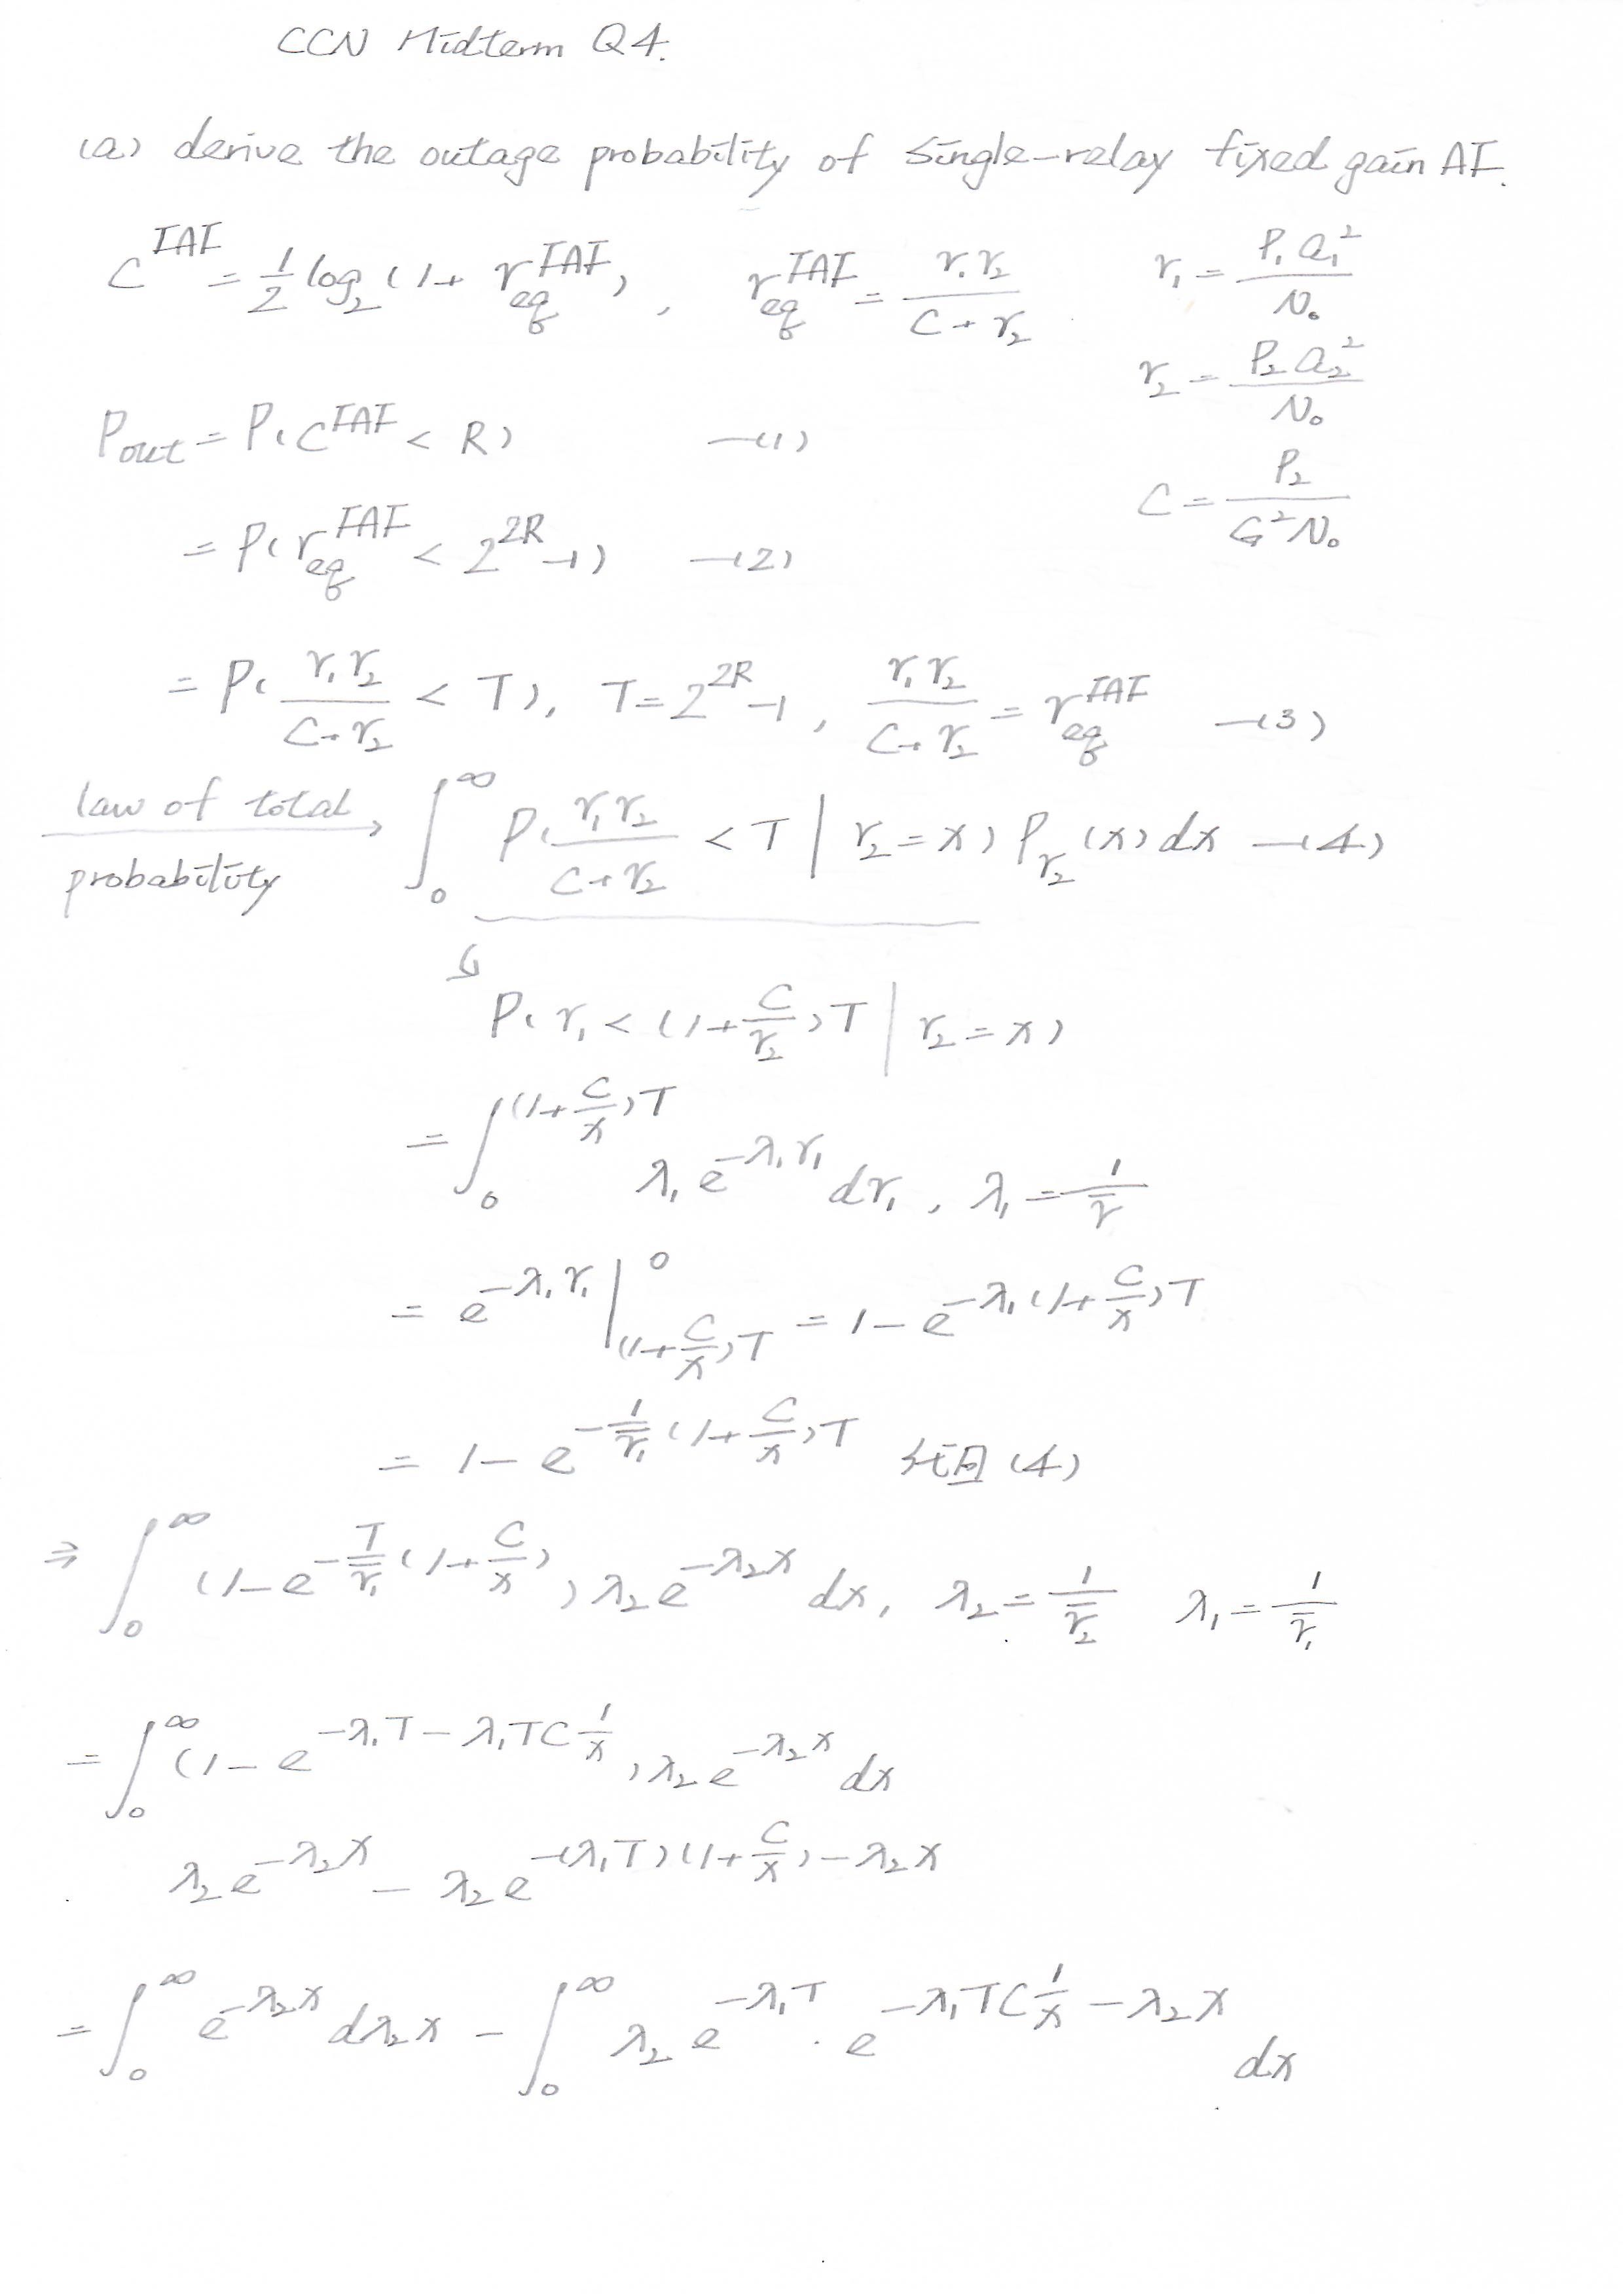 CCN Midterm Q4.
(a) derive the outage probability of single-relay fixed gain AF.
C^{FAF} = \frac{1}{2} log_2 (1 + r_{eq}^{FAF}), r_{eq}^{FAF} = \frac{r_1 r_2}{C + r_2} r_1 = \frac{P_1 a_1^2}{N_0}
r_2 = \frac{P_2 a_2^2}{N_0}
P_{out} = P(C^{FAF} < R) —(1)
C = \frac{P_2}{G^2 N_0}
= P(r_{eq}^{FAF} < 2^{2R} -1) —(2)
= P(\frac{r_1 r_2}{C + r_2} < T), T = 2^{2R} -1, \frac{r_1 r_2}{C + r_2} = r_{eq}^{FAF} —(3)
law of total probability → \int_0^∞ P(\frac{r_1 r_2}{C + r_2} < T | r_2 = x) P_{r_2}(x) dx —(4)
P(r_1 < (1 + \frac{C}{r_2})T | r_2 = x)
= \int_0^{(1 + \frac{C}{x})T} λ_1 e^{-λ_1 r_1} dr_1, λ_1 = \frac{1}{\bar{r}}
= e^{-λ_1 r_1} |_{(1 + \frac{C}{x})T}^0 = 1 - e^{-λ_1 (1 + \frac{C}{x})T}
= 1 - e^{-\frac{1}{\bar{r}_1} (1 + \frac{C}{x})T} 代回 (4)
⇒ \int_0^∞ (1 - e^{-\frac{T}{\bar{r}_1} (1 + \frac{C}{x})}) λ_2 e^{-λ_2 x} dx, λ_2 = \frac{1}{\bar{r}_2} λ_1 = \frac{1}{\bar{r}_1}
= \int_0^∞ (1 - e^{-λ_1 T - λ_1 TC \frac{1}{x}}) λ_2 e^{-λ_2 x} dx
λ_2 e^{-λ_2 x} - λ_2 e^{-(λ_1 T)(1 + \frac{C}{x}) - λ_2 x}
= \int_0^∞ e^{-λ_2 x} dλ_2 x - \int_0^∞ λ_2 e^{-λ_1 T} · e^{-λ_1 TC \frac{1}{x} - λ_2 x} dx